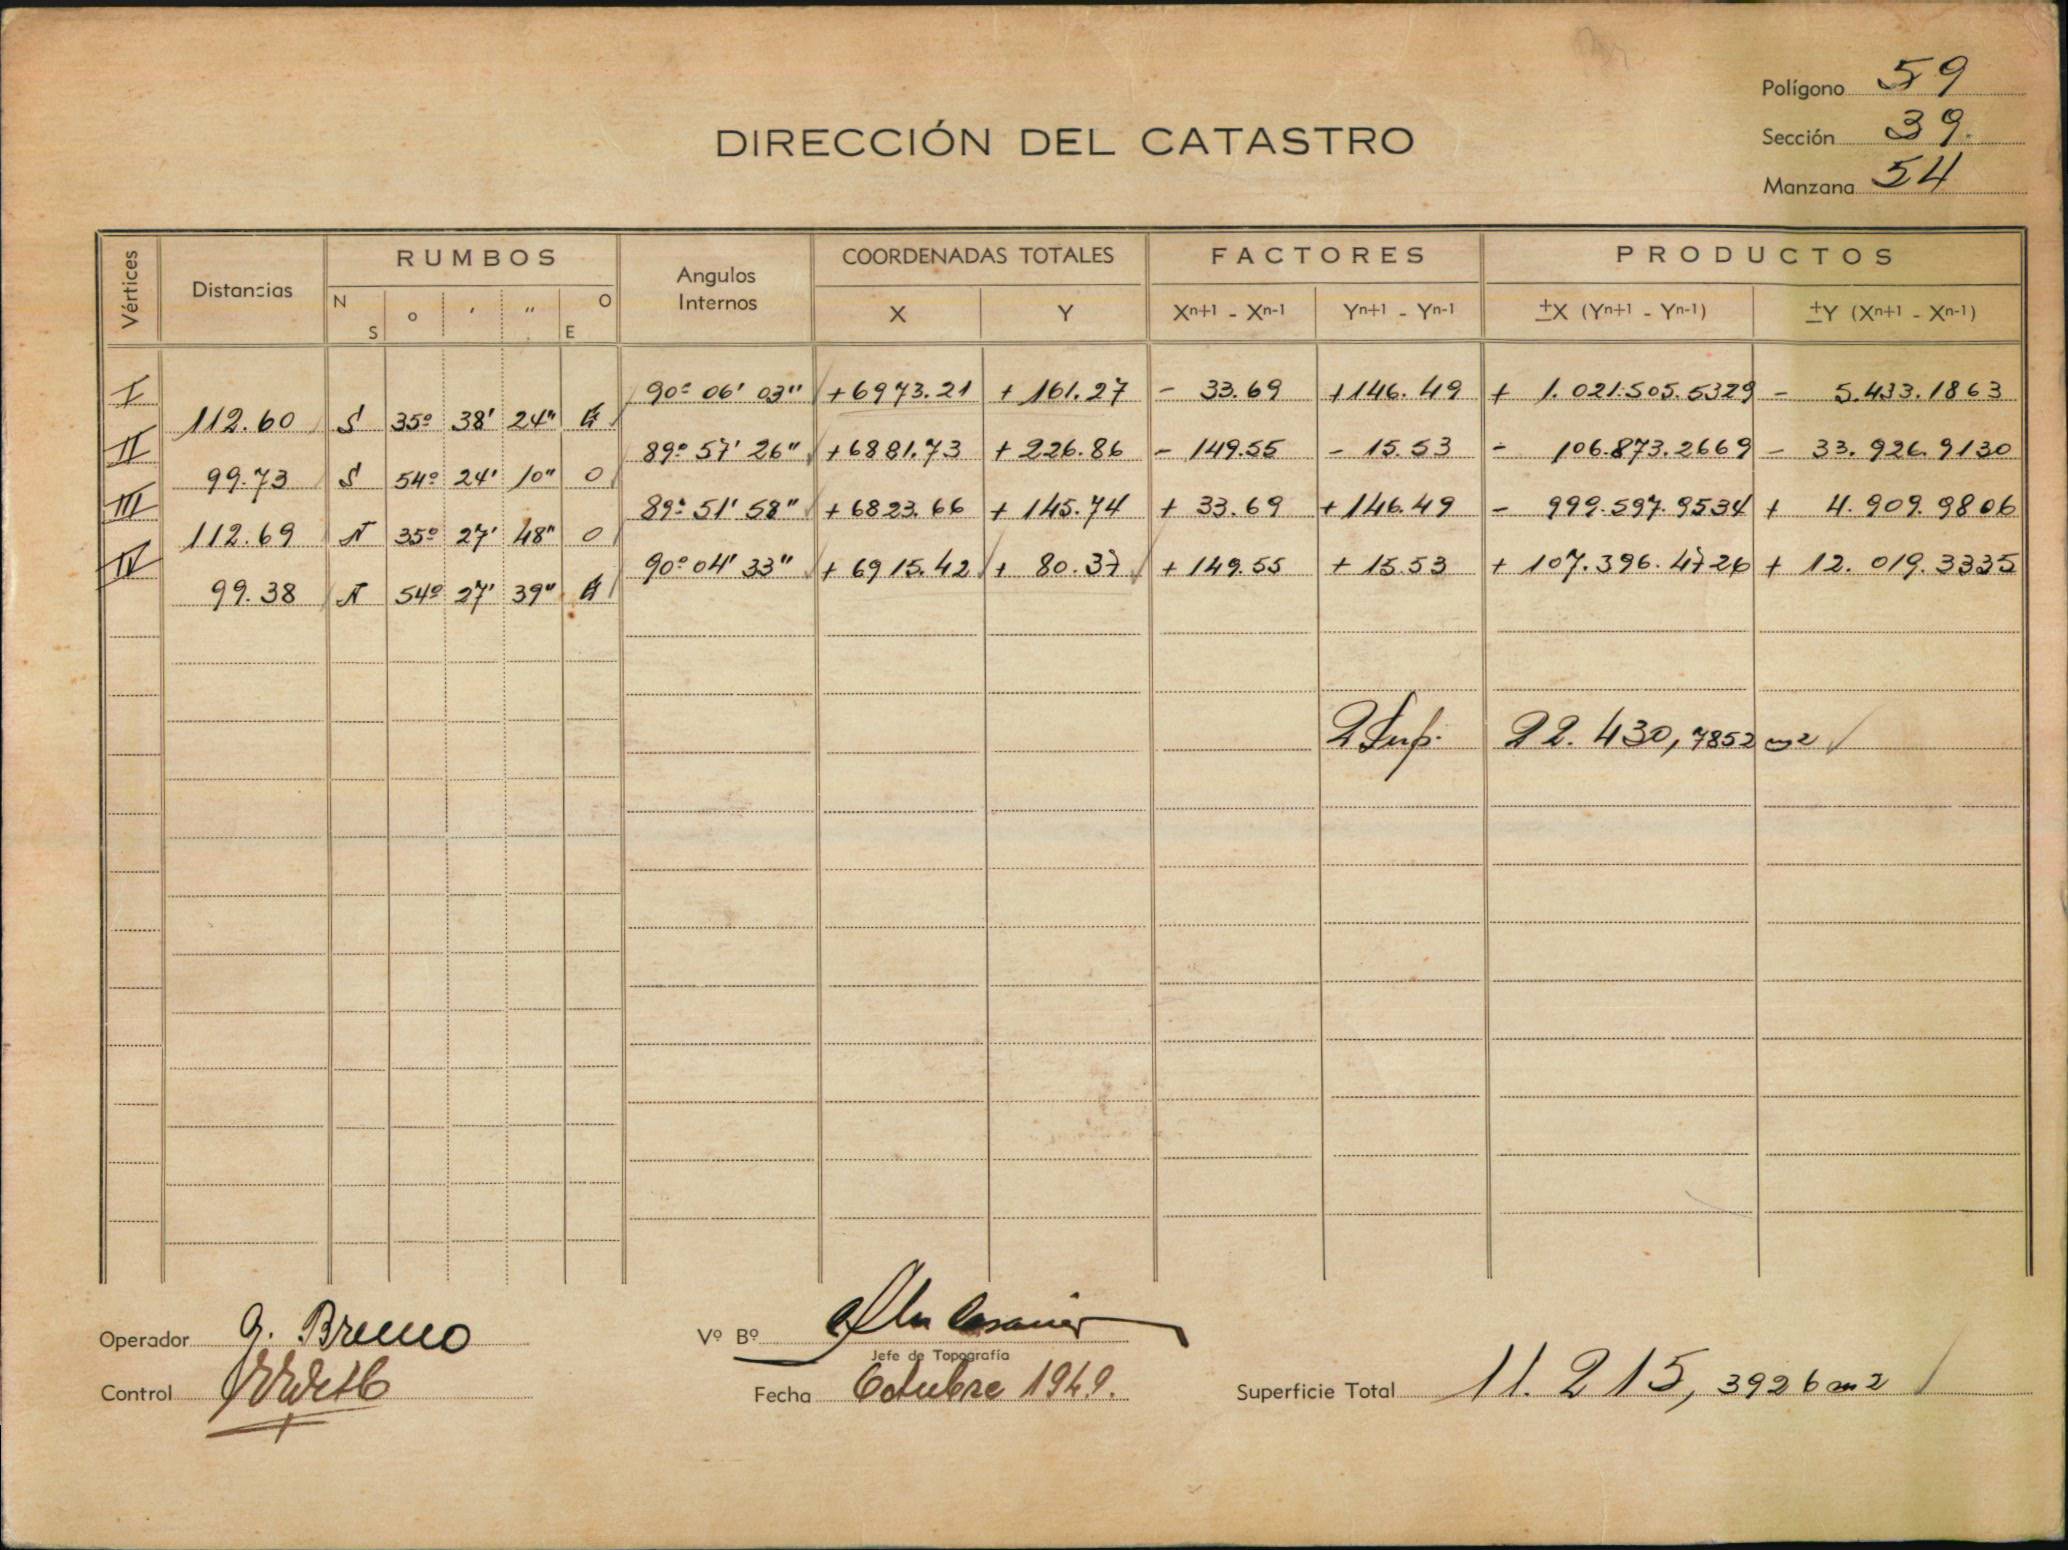 Polígono 59
DIRECCIÓN DEL CATASTRO
Sección 39.
Manzana 54
Vértices Distancias RUMBOS Angulos Internos COORDENADAS TOTALES FACTORES PRODUCTOS
N S o ' " O E X Y Xn+1 - Xn-1 Yn+1 - Yn-1 ±X (Yn+1 - Yn-1) ±Y (Xn+1 - Xn-1)
I 90º 06' 03" +6973.21 + 161.27 - 33.69 +146.49 + 1.021.505.5329 - 5.433.1863
112.60 S 35º 38' 24" E
II 89º 57' 26" +6881.73 + 226.86 - 149.55 - 15.53 - 106.873.2669 - 33.926.9130
99.73 S 54º 24' 10" O
III 89º 51' 58" +6823.66 + 145.74 + 33.69 +146.49 - 999.597.9534 + 4.909.9806
112.69 N 35º 27' 48" O
IV 90º 04' 33" + 6915.42 + 80.37 + 149.55 + 15.53 + 107.396.4726 + 12.019.3335
99.38 N 54º 27' 39" E
2 Sup. 22.430,7852 m2
Operador G. Bruno
Vº Bº
Jefe de Topografía
Control
Fecha Octubre 1949.
Superficie Total 11.215,3926 m2